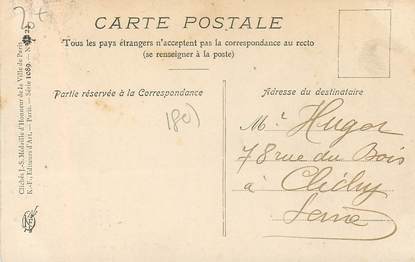 CARTE POSTALE
Tous les pays étrangers n'acceptent pas la correspondance au recto
(se renseigner à la poste)
Partie réservée à la Correspondance
Adresse du destinataire
180
Mr Hugot
78 rue du Bois
à Clichy
Seine
Clichés J.-S. Médaille d'Honneur de la Ville de Paris
K.-F., Editeurs d'Art, — Paris. — Série 1089. — N°